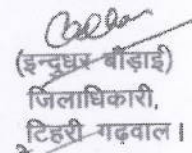 (इन्दुधर बौड़ाई)
जिलाधिकारी,
टिहरी गढ़वाल।